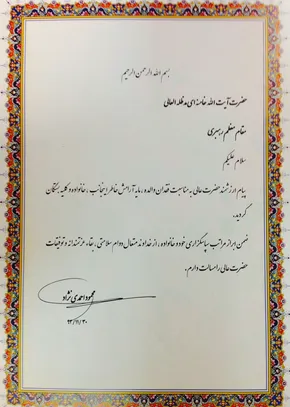 بسم الله الرحمن الرحیم
حضرت آیت الله خامنه ای مد ظله العالی
مقام معظم رهبری
سلام علیکم
پیام ارزشمند حضرت عالی به مناسبت فقدان والده، مایه آرامش خاطر اینجانب، خانواده و کلیه بستگان
گردید.
ضمن ابراز مراتب سپاسگزاری خود و خانواده، از خداوند متعال دوام سلامتی، بقاء عزتمندانه و توفیقات
حضرت عالی را مسالت دارم.
محمود احمدی نژاد
۹۳/۱۱/۳۰